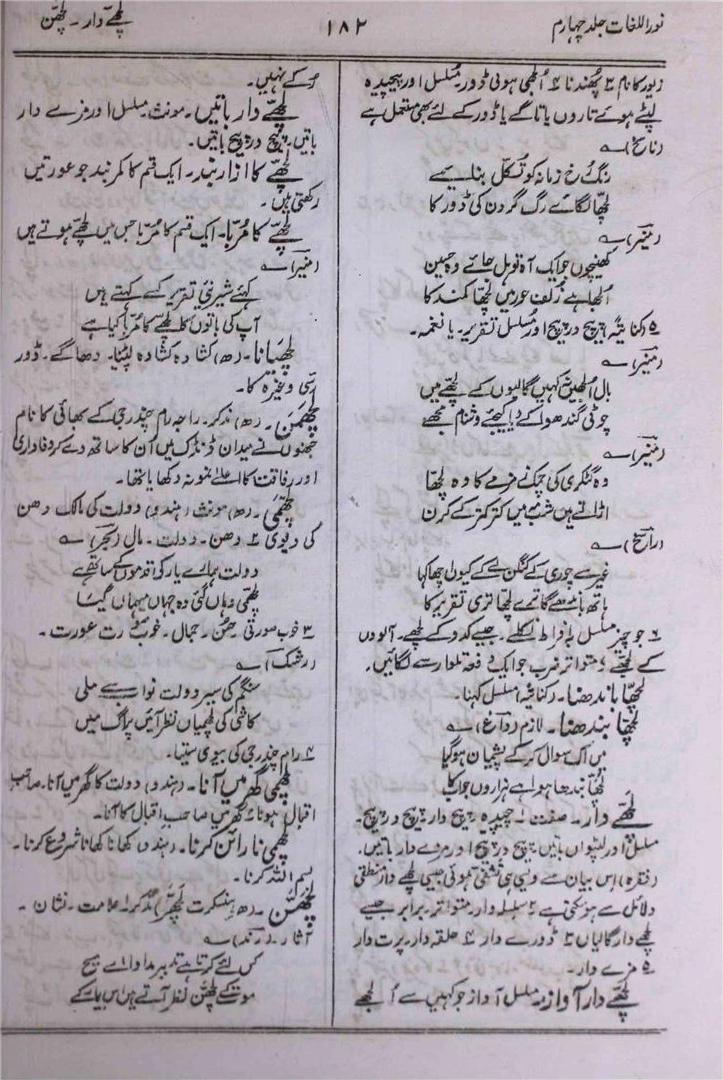 نور اللغات جلد چہارم
۱۸۲
لچھے دار ۔ لچھن
زیور کا نام ۳ پھندنا ۴ الجھی ہوئی ڈور ۔ مسلسل اور پیچیدہ
لپٹے ہوئے تاروں یا تاگے یا ڈور کے لئے بھی مستعمل ہے
(ناسخ) ؎
رنگ رخ زمانہ کو تکل بنائیے
لچھا لگائے رگ گردن کی ڈور کا
(منیر) ؎
کھینچوں جو ایک آہ تو بل جائے وہ جبیں
الجھا ہے زلف حور میں لچھا کمند کا
۵ کنایۃً پیچ در پیچ اور مسلسل تقریر ۔ یا نغمہ ۔
(منیر) ؎
بال الجھیں کہیں گالیوں کے لچھے میں
چوٹی گندھوا کے نہ دیا کیجئے دشنام مجھے
(منیر) ؎
وہ گٹکری کی چمک زمزمے کا وہ لچھا
اڑاتے ہیں شب میں کتر کتر کے کرن
(راسخ) ؎
غیر سے چوری کے کنگن لے کے کیوں اچھا کہا
ہاتھ باندھے گا ترے لچھا تری تقریر کا
۶ جو چیز مسلسل بافراط نکلے ۔ جیسے کدو کے لچھے ۔ آلووں
کے لچھے ۷ متواتر ضرب جو ایک دفعۃ تلوار سے لگائیں ۔
لچھا باندھنا ۔ کنایۃً مسلسل کہنا ۔
لچھا بندھنا ۔ لازم (داغ) ؎
میں اک سوال کر کے پشیمان ہوگیا
لچھا بندھا ہوا ہے ہزاروں جواب کا
لچھے دار ۔ صفت ۱ پیچیدہ ۔ پیچ دار ۔ پیچ در پیچ ۔
مسلسل اور لپٹواں باتیں ۔ پیچ در پیچ اور مزے دار باتیں ۔
(فقرہ) اس بیان سے ویسی ہی تشفی ہوئی جیسی لچھے دار منطقی
دلائل سے ہو سکتی ہے ۲ سلسلہ وار ۔ متواتر ۔ برابر جیسے
لچھے دار گالیاں ۳ ڈورے دار ۴ حلقہ دار ۔ پرت دار
۵ مزے دار ۔
لچھے دار آواز ۔ مسلسل آواز جو کہیں سے الجھے
رکے نہیں ۔
لچھے دار باتیں ۔ مونث ۔ مسلسل اور مزے دار
باتیں ۔ پیچ در پیچ باتیں ۔
لچھے کا ازار بند ۔ ایک قسم کا کمر بند جو عورتیں
رکھتی ہیں ۔
لچھے کا مربا ۔ ایک قسم کا مربا جس میں لچھے ہوتے ہیں
(منیر) ؎
کہئے شیرینی تقریر کسے کہتے ہیں
آپ کی باتوں کا لچھے کا مربا کیا ہے
لچھیانا ۔ (ھ) کشادہ کشادہ لپٹنا ۔ دھاگے ۔ ڈور
رسی وغیرہ کا ۔
لچھمن ۔ (ھ) مذکر ۔ راجہ رام چندرجی کے بھائی کا نام
جنہوں نے میدان ڈنڈک میں ان کا ساتھ دے کر وفاداری
اور رفاقت کا اعلےٰ نمونہ دکھایا تھا ۔
لچھمی ۔ (ھ) مونث (ہندو) دولت کی مالک دھن
کی دیوی ۲ دھن ۔ دولت ۔ مال (بحر) ؎
دولت ہمارے یار کی قدموں کے ساتھ ہے
لچھمی وہاں گئی وہ جہاں میہماں گیا
۳ خوب صورتی ۔ حسن ۔ جمال ۔ خوبصورت عورت ۔
(رشک) ؎
سنگم کی سیر دولت نوا سے ملی
کاشی کی لچھمیاں نظر آئیں پراگ میں
۴ رام چندرجی کی بیوی سیتا ۔
لچھمی گھر میں آنا ۔ (ہندو) دولت کا گھر میں آنا ۔ صاحب
اقبال ہونا ۔ گھر میں صاحب اقبال کا آنا ۔
لچھمی نارائن کرنا ۔ (ہندو) کھانا کھانا شروع کرنا ۔
بسم اللہ کرنا ۔
لچھن ۔ (ھ ۔ سنسکرت لچھن) مذکر ۔ علامت ۔ نشان ۔
آثار ۔ (رند) ؎
کس لئے کرتا ہے تدبیر مداوا اے مسیح
موت کے لچھن نظر آتے ہیں اس بیمار کے